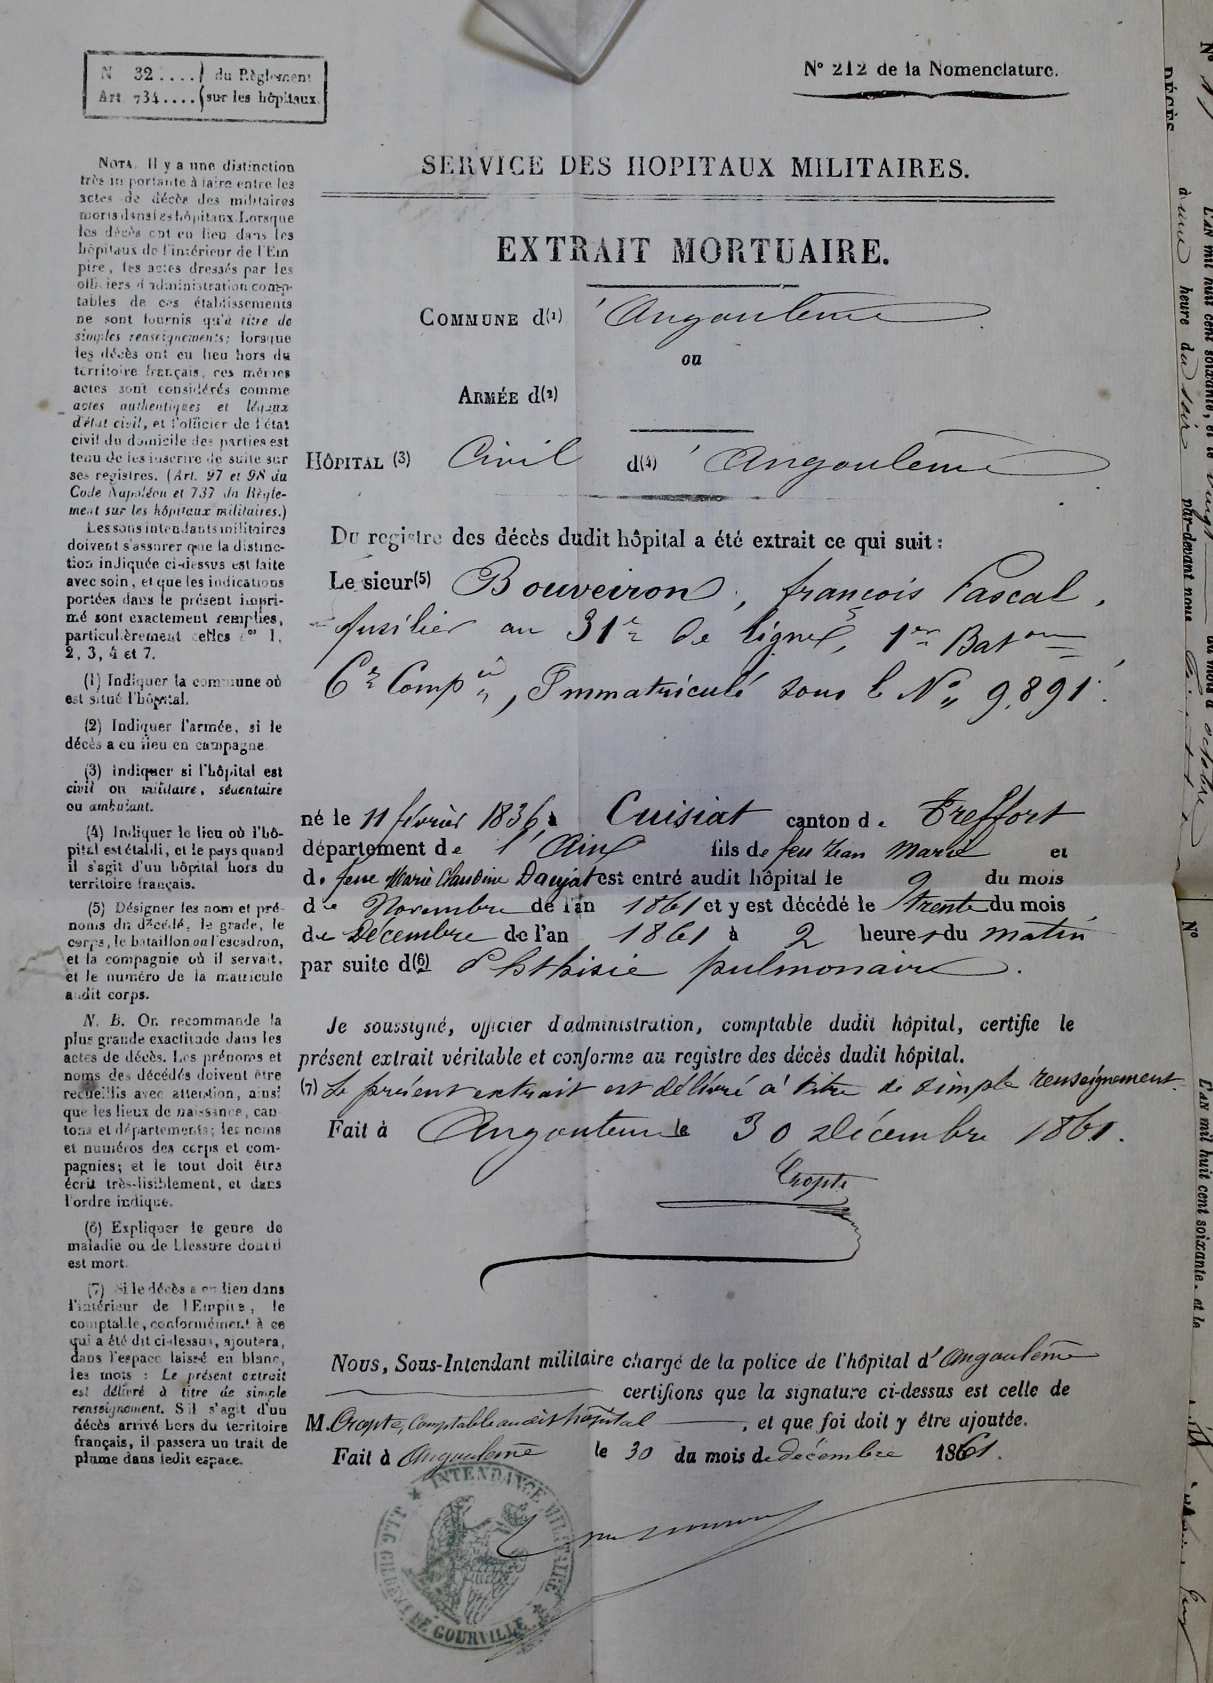 N 32 .... du Règlement
Art 734 .... sur les hôpitaux.
N° 212 de la Nomenclature.
SERVICE DES HOPITAUX MILITAIRES.
EXTRAIT MORTUAIRE.
COMMUNE d(1) 'Angoulême
ou
ARMÉE d(2)
HÔPITAL (3) Civil d(4) 'Angoulême
Du registre des décès dudit hôpital a été extrait ce qui suit :
Le sieur(5) Bouveiron, françois Pascal,
fusilier au 31e de ligne, 1er Baton,
6e Compie, Immatriculé sous le No 9,891.
né le 11 février 1836, à Cuisiat canton de Treffort
département de l'Ain fils de feu Jean Marie et
de feue Marie Claudine Daujat est entré audit hôpital le 9 du mois
de Novembre de l'an 1861 et y est décédé le trente du mois
de Décembre de l'an 1861 à 2 heures du matin
par suite d(6) Phthisie pulmonaire.
Je soussigné, officier d'administration, comptable dudit hôpital, certifie le
présent extrait véritable et conforme au registre des décès dudit hôpital.
(7) Le présent extrait est délivré à titre de simple renseignement.
Fait à Angoulême le 30 Décembre 1861.
Cropte
Nous, Sous-Intendant militaire chargé de la police de l'hôpital d'Angoulême
certifions que la signature ci-dessus est celle de
M. Cropte, comptable audit hôpital, et que foi doit y être ajoutée.
Fait à Angoulême le 30 du mois de décembre 1861.
INTENDANCE MILITAIRE
DE GOURVILLE
NOTA. Il y a une distinction
très importante à faire entre les
actes de décès des militaires
morts dans les hôpitaux. Lorsque
les décès ont eu lieu dans les
hôpitaux de l'intérieur de l'Em
pire, les actes dressés par les
officiers d'administration comp-
tables de ces établissements
ne sont fournis qu'à titre de
simples renseignements; lorsque
les décès ont eu lieu hors du
territoire français, ces mêmes
actes sont considérés comme
actes authentiques et légaux
d'état civil, et l'officier de l'état
civil du domicile des parties est
tenu de les inscrire de suite sur
ses registres. (Art. 97 et 98 du
Code Napoléon et 737 du Règle-
ment sur les hôpitaux militaires.)
Les sous intendants militaires
doivent s'assurer que la distinc-
tion indiquée ci-dessus est faite
avec soin, et que les indications
portées dans le présent impri-
mé sont exactement remplies,
particulièrement celles nos 1,
2, 3, 4 et 7.
(1) Indiquer la commune où
est situé l'hôpital.
(2) Indiquer l'armée, si le
décès a eu lieu en campagne.
(3) Indiquer si l'hôpital est
civil ou militaire, sédentaire
ou ambulant.
(4) Indiquer le lieu où l'hô-
pital est établi, et le pays quand
il s'agit d'un hôpital hors du
territoire français.
(5) Désigner les nom et pré-
noms du décédé, le grade, le
corps, le bataillon ou l'escadron,
et la compagnie où il servait,
et le numéro de la matricule
audit corps.
N. B. On recommande la
plus grande exactitude dans les
actes de décès. Les prénoms et
noms des décédés doivent être
recueillis avec attention, ainsi
que les lieux de naissance, can
tons et départements; les noms
et numéros des corps et com-
pagnies; et le tout doit être
écrit très-lisiblement, et dans
l'ordre indiqué.
(6) Expliquer le genre de
maladie ou de blessure dont il
est mort.
(7) Si le décès a eu lieu dans
l'intérieur de l'Empire, le
comptable, conformément à ce
qui a été dit ci-dessus, ajoutera,
dans l'espace laissé en blanc,
les mots : Le présent extrait
est délivré à titre de simple
renseignement. S'il s'agit d'un
décès arrivé hors du territoire
français, il passera un trait de
plume dans ledit espace.
DÉCÈS
N°
L'AN mil huit cent soixante, et le vingt
du mois d octobre
à une heure du soir par-devant nous
N°
L'AN mil huit cent soixante, et le